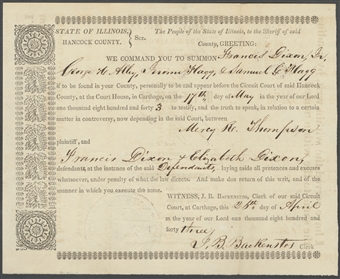 STATE OF ILLINOIS, The People of the State of Illinois, to the Sheriff of said
HANCOCK COUNTY. Sct. County, GREETING:
WE COMMAND YOU TO SUMMON Francis Dixon, Jr,
George W. Samuel C Flagg
if to be found in your County, personally to be and appear before the Circuit Court of said Hancock
County, at the Court House, in Carthage, on the 17th day of May in the year of our Lord
one thousand eight hundred and forty 3 to testify, and the truth to speak, in relation to a certain
matter in controversy, now depending in the said Court, between
Mercy R. Thompson
plaintiff, and
Francis Dixon & Elizabeth Dixon,
defendant, at the instance of the said Defendants, laying aside all pretences and excuses
whatsoever, under penalty of what the law directs. And make due return of this writ, and of the
manner in which you execute the same.
WITNESS, J. B. BACKENSTOS, Clerk of our said Circuit
Court, at Carthage, this 28th day of April
in the year of our Lord one thousand eight hundred and
forty three.
J. B. Backenstos Clerk